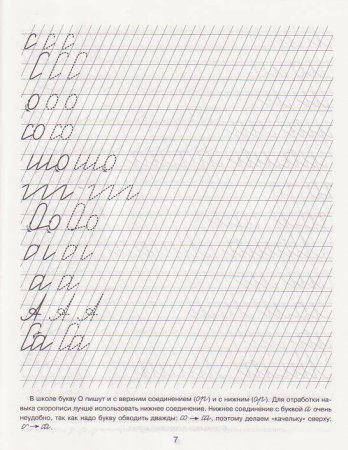 с с с
С С С
о о о
со со
шо шо
Оо Оо
а а
А А А
Са Са
В школе букву О пишут и с верхним соединением (ол) и с нижним (ол). Для отработки на-
выка скорописи лучше использовать нижнее соединение. Нижнее соединение с буквой а очень
неудобно, так как надо букву обводить дважды: поэтому делаем «качельку» сверху:
7